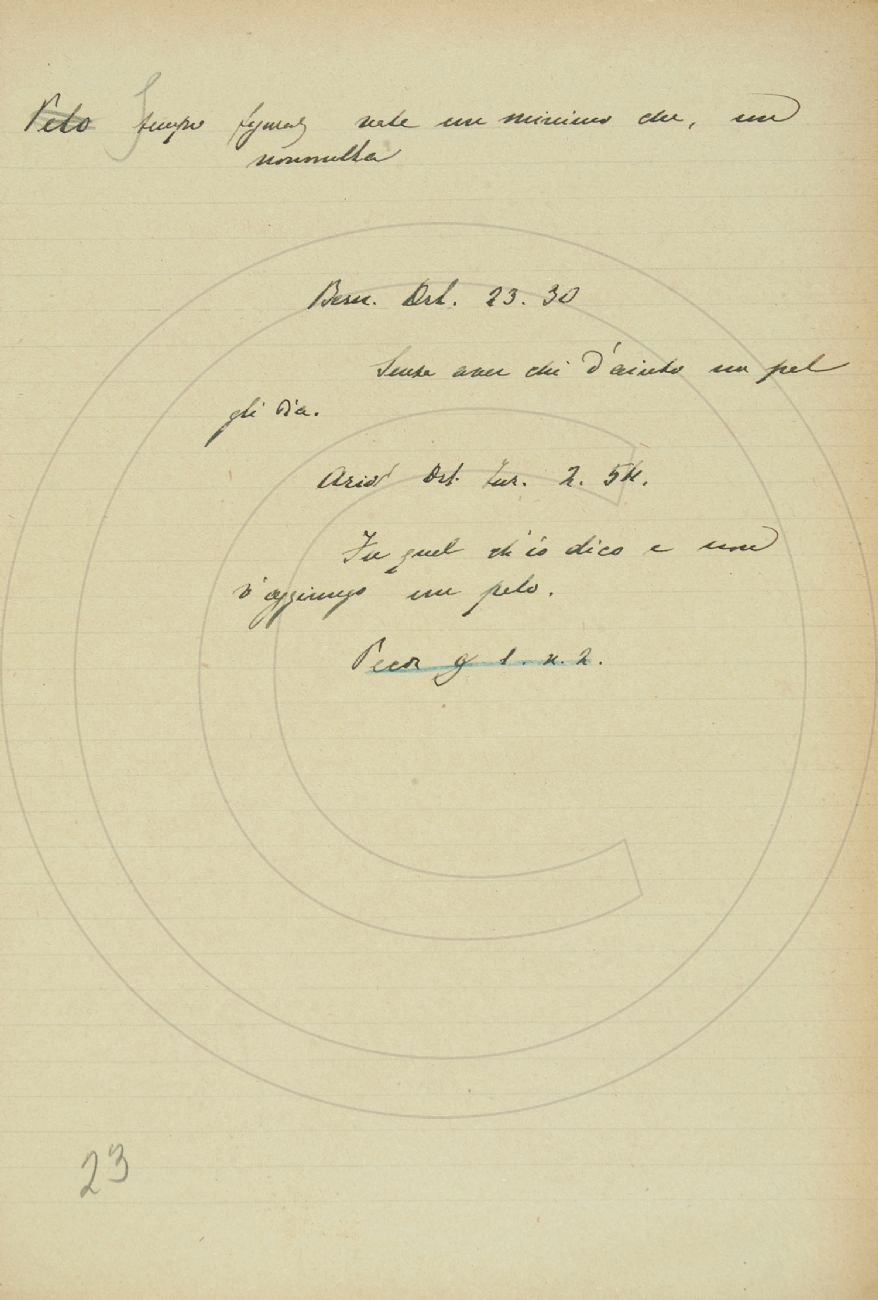 Pelo sempre figurat vale un minimo che, un
nonnulla
Bern. Orl. 23. 30
Senza aver chi d'aiuto un pel
gli dia.
Arios' Orl. Fur. 2. 54.
Fu quel ch'io dico e non
v'aggiungo un pelo.
Pecor g 1. n. 2.
23